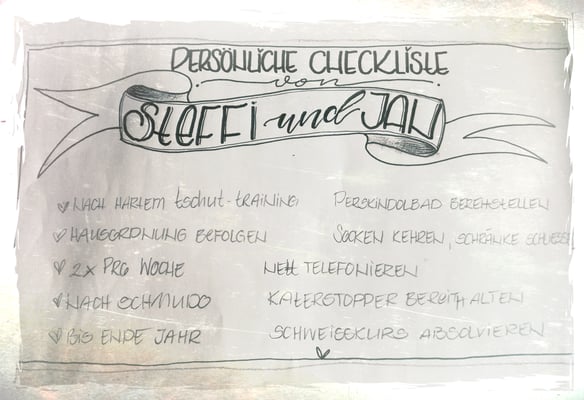 PERSÖNLICHE CHECKLISTE
von
STEFFI und JAN
NACH HARTEM tschut-TRAINING PERSKINDOLBAD BEREITSTELLEN
HAUSORDNUNG BEFOLGEN SOCKEN KEHREN, SCHRÄNKE SCHLIESS
2x PRO WOCHE NETT TELEFONIEREN
NACH SCHMUDO KATERSTOPPER BEREITHALTEN
BIS ENDE JAHR SCHWEISSKURS ABSOLVIEREN